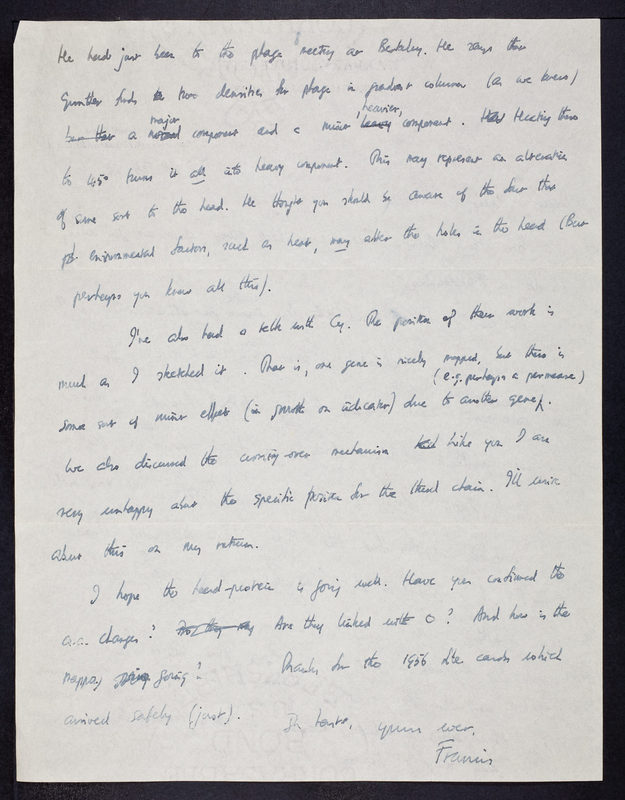 He had just been to the phage meeting at Berkeley. He says that
Gunther finds two densities for phage in gradient column (as we knew)
major heavier,
but that a normal component and a minor heavy component. Heating them
to 45° turns it all into heavy component. This may represent an alteration
of some sort to the head. He thought you should be aware of the fact that
environmental factors, such as heat, may alter the holes in the head (But
perhaps you know all this).
I've also had a talk with Cy. The position of their work is
much as I sketched it. That is, one gene is nicely mapped, but there is
(e.g. perhaps a permease)
some sort of minor effect (in growth on indicator) due to another gene.
We also discussed the crossing-over mechanism. Like you I are
very unhappy about the specific position for the third chain. I'll write
about this on my return.
I hope the head-protein is going well. Have you confirmed the
a.a. changes? Are they linked with O? And how is the
mapping going? Thanks for the 1956 cards which
arrived safely (just). In haste, yours ever,
Francis